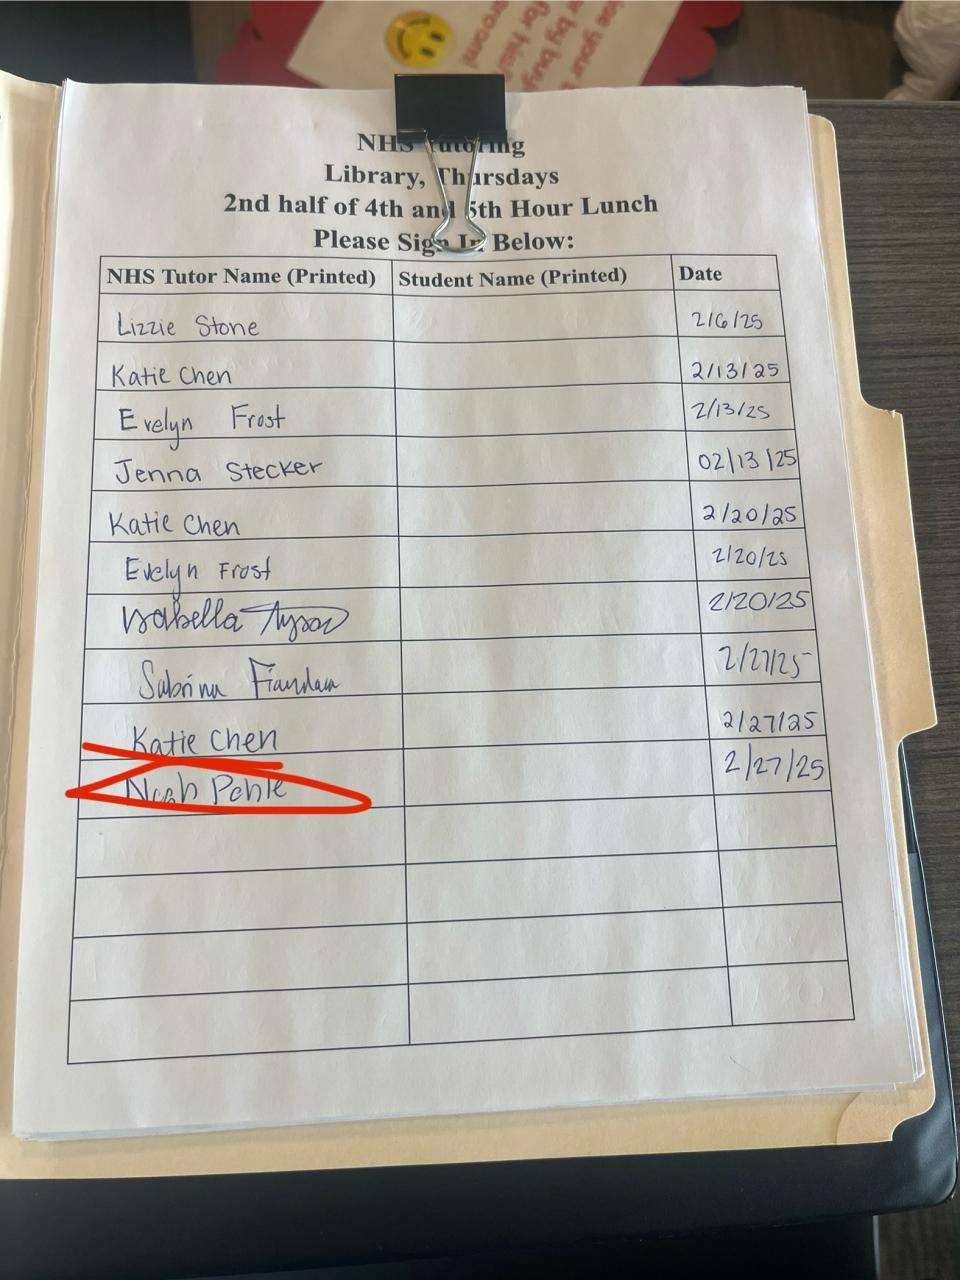 NHS Tutoring
Library, Thursdays
2nd half of 4th and 5th Hour Lunch
Please Sign In Below:
NHS Tutor Name (Printed) Student Name (Printed) Date
Lizzie Stone 2/6/25
Katie Chen 2/13/25
Evelyn Frost 2/13/25
Jenna Stecker 02/13/25
Katie Chen 2/20/25
Evelyn Frost 2/20/25
Isabella Tyson 2/20/25
Sabrina 2/27/25
Katie Chen 2/27/25
Noah 2/27/25